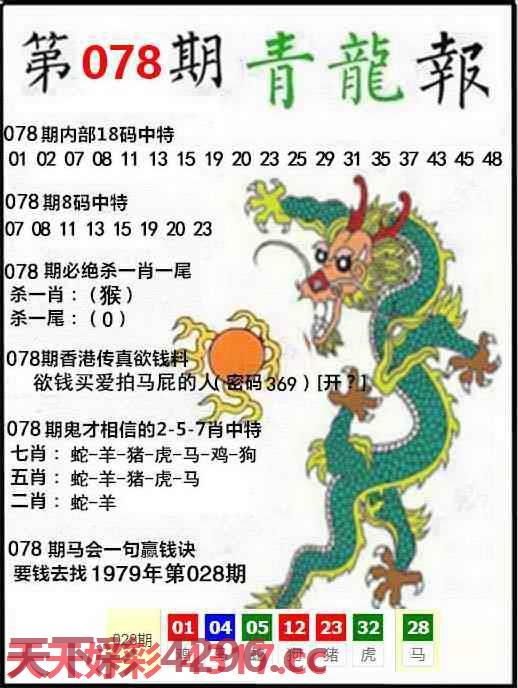 第078期青龍報
078期内部18码中特
01 02 07 08 11 13 15 19 20 23 25 29 31 35 37 43 45 48
078期8码中特
07 08 11 13 15 19 20 23
078期必绝杀一肖一尾
杀一肖:(猴)
杀一尾:(0)
078期香港传真欲钱料
欲钱买爱拍马屁的人(密码369)[开?]
078期鬼才相信的2-5-7肖中特
七肖:蛇-羊-猪-虎-马-鸡-狗
五肖:蛇-羊-猪-虎-马
二肖:蛇-羊
078期马会一句赢钱诀
要钱去找1979年第028期
028期 01 04 05 12 23 32 28
狗 猪 虎 马